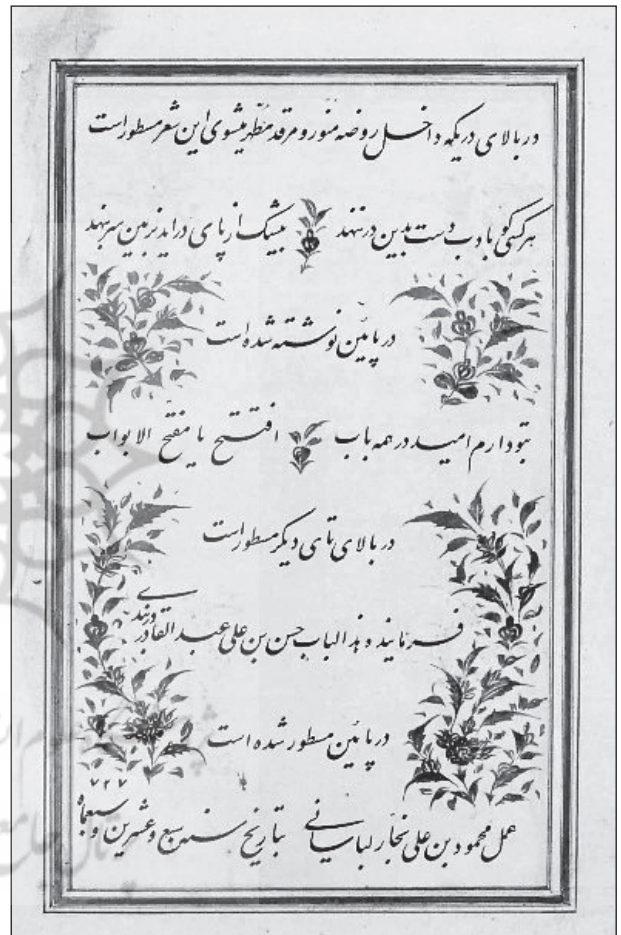 در بالای دریکه داخل روضه منور و مرقد مطهر میشوی این شعر مسطور است
هر کسی کو بادب دست بدین در ننهد بیشک از پای دراید بزمین سر بنهد
در پائین نوشته شده است
بتو دارم امید در همه باب افتتح یا مفتح الابواب
در بالای تای دیگر مسطور است
فرماینده هذ الباب حسن بن علی عبد القادر
در پائین مسطور شده است
۷۲۷
عمل محمود بن علی نجار لباسانی بتاریخ سنه سبع و عشرین و سبعماه